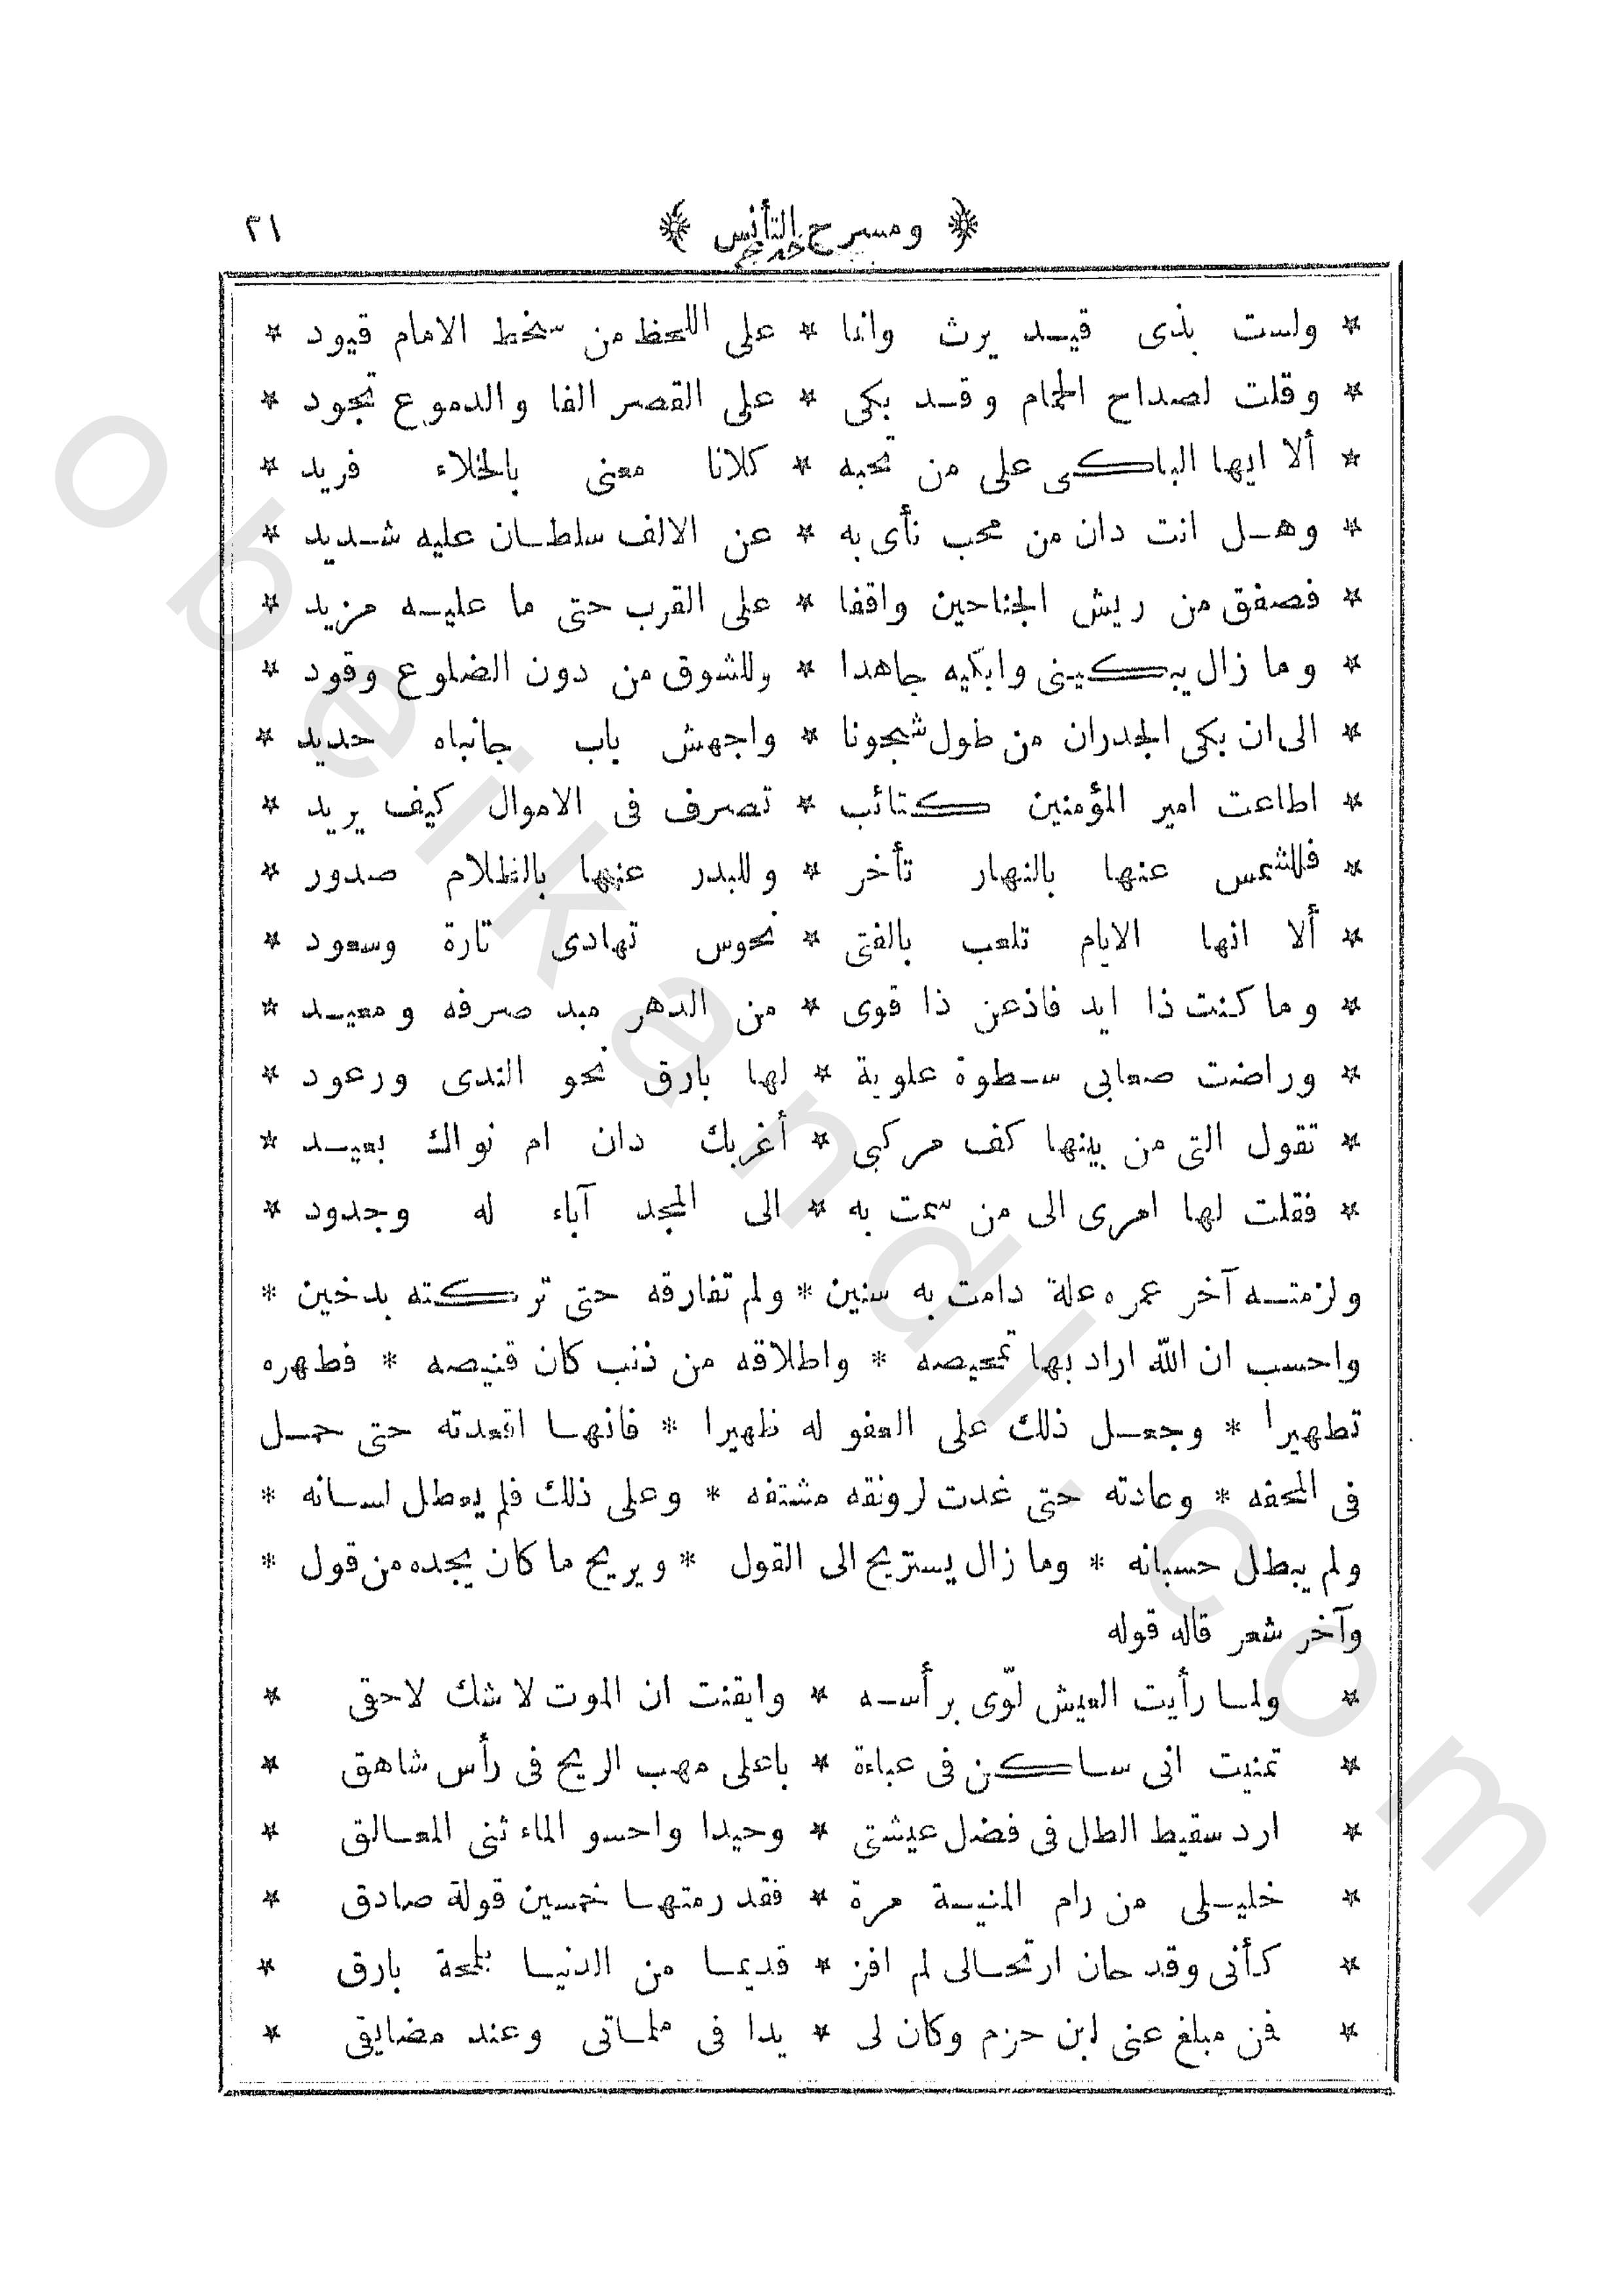 ﴿ ومسرح التأنس ﴾ ٢١
* ولست بذى قيد يرث وانا * على اللحظ من سخط الامام قيود *
* وقلت لصداح الحمام وقد بكى * على القصر الفا والدموع تجود *
* ألا ايها الباكى على من تحبه * كلانا معنى بالخلاء فريد *
* وهل انت دان من محب نأى به * عن الالف سلطان عليه شديد *
* فصفق من ريش الجناحين واقفا * على القرب حتى ما عليه مزيد *
* وما زال يبكينى وابكيه جاهدا * وللشوق من دون الضلوع وقود *
* الى ان بكى الجدران من طول شجونا * واجهش باب جانباه حديد *
* اطاعت امير المؤمنين كتائب * تصرف فى الاموال كيف يريد *
* فللشمس عنها بالنهار تأخر * وللبدر عنها بالظلام صدور *
* ألا انها الايام تلعب بالفتى * نحوس تهادى تارة وسعود *
* وما كنت ذا ايد فاذعن ذا قوى * من الدهر مبد صرفه ومعيد *
* وراضت صعابى سطوة علوية * لها بارق نحو الندى ورعود *
* تقول التى من بينها كف مركبى * أغربك دان ام نواك بعيد *
* فقلت لها امرى الى من سمت به * الى المجد آباء له وجدود *
ولزمته آخر عمره علة دامت به سنين * ولم تفارقه حتى تركته بدخين *
واحسب ان الله اراد بها تمحيصه * واطلاقه من ذنب كان قنيصه * فطهره
تطهيرا * وجعل ذلك على العفو له ظهيرا * فانها اقعدته حتى حمل
فى المحفه * وعادته حتى غدت لرونقه مشتفه * وعلى ذلك فلم يعطل لسانه *
ولم يبطل حسبانه * وما زال يستريح الى القول * ويريح ما كان يجده من قول *
وآخر شعر قاله قوله
* ولما رأيت العيش لوّى برأسه * وايقنت ان الموت لا شك لاحقى *
* تمنيت انى ساكن فى عباءة * باعلى مهب الريح فى رأس شاهق *
* ارد سقيط الطل فى فضل عيشتى * وحيدا واحسو الماء ثنى المعالق *
* خليلى من رام المنية مرة * فقد رمتها خمسين قولة صادق *
* كأنى وقد حان ارتحالى لم افز * قديما من الدنيا بلمحة بارق *
* فمن مبلغ عنى ابن حزم وكان لى * يدا فى ملماتى وعند مضايقى *
obeikandl.com